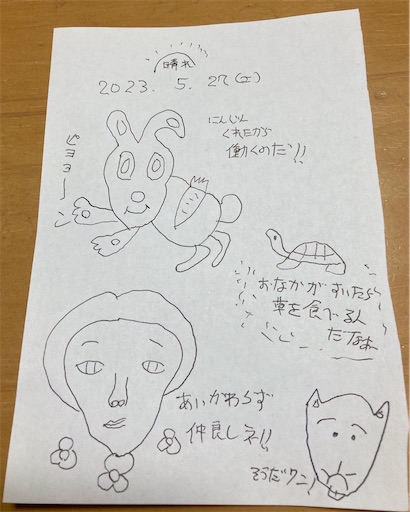 晴れ
2023. 5. 27(土)
にんじん
くれたから
働くのだ!!
ピョョーン
おなかがすいたら
草を食べるん
だなぁ
あいかわらず
仲良しネ!!
そうだワン